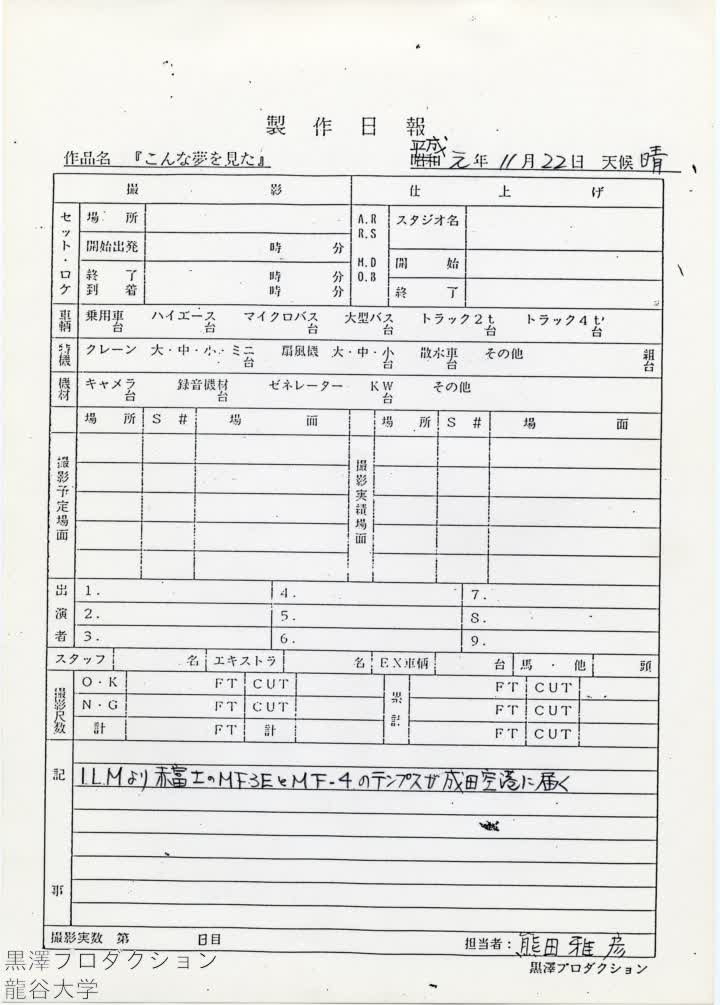 製作日報
作品名 『こんな夢を見た』 平成 昭和 元年 11月22日 天候 晴
撮影 仕上げ
セット・ロケ 場所 A.R R.S スタジオ名
開始出発 時 分 M.D O.B 開始
終了 時 分 終了
到着 時 分
車輌 乗用車 台 ハイエース 台 マイクロバス 台 大型バス 台 トラック2t 台 トラック4t 台
特機 クレーン 大・中・小・ミニ 台 扇風機 大・中・小 台 散水車 台 その他 組 台
機材 キャメラ 台 録音機材 台 ゼネレーター KW 台 その他
場所 S # 場面 場所 S # 場面
撮影予定場面 撮影実績場面
出演者 1. 4. 7.
2. 5. 8.
3. 6. 9.
スタッフ 名 エキストラ 名 EX車輌 台 馬・他 頭
撮影尺数 O・K FT CUT 累計 FT CUT
N・G FT CUT FT CUT
計 FT 計 FT CUT
記事 I.L.Mより赤富士のMF-3EとMF-4のテンプスが成田空港に届く
撮影実数 第 日目 担当者: 熊田雅彦
黒澤プロダクション
黒澤プロダクション
龍谷大学